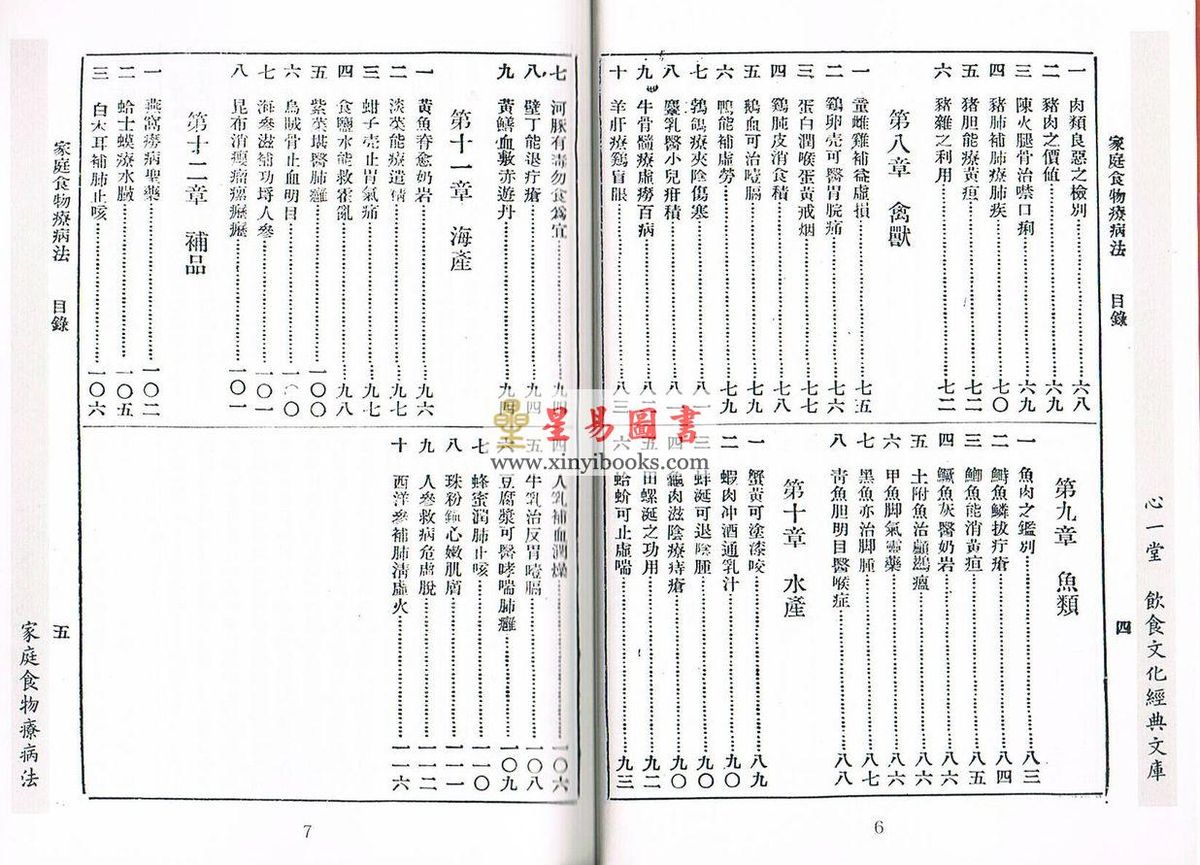 心一堂　飲食文化經典文庫
家庭食物療病法　目錄　四
一　肉類良惡之檢別……六八
二　豬肉之價値……六九
三　陳火腿骨治噤口痢……六九
四　豬肺補肺療肺疾……七〇
五　猪胆能療黃疸……七二
六　豬雜之利用……七二
第八章　禽獸
一　童雌雞補益虛損……七五
二　鷄卵壳可醫胃脘痛……七六
三　蛋白潤喉蛋黃戒烟……七六
四　鷄肫皮消食積……七八
五　鵝血可治噎膈……七八
六　鴨能補虛勞……七九
七　鵓鴿療夾陰傷寒……八一
八　麋乳醫小兒疳積……八一
九　牛骨髓療虛癆百病……八二
十　羊肝療鷄盲眼……八三
第九章　魚類
一　魚肉之鑑別……八三
二　鰣魚鱗拔疔瘡……八四
三　鯽魚能消黃疸……八五
四　鱖魚灰醫奶岩……八六
五　土附魚治顱鷀瘟……八六
六　甲魚脚氣靈藥……八六
七　黑魚亦治脚腫……八七
八　靑魚胆明目醫喉症……八八
第十章　水產
一　蟹黃可塗漆咬……八九
二　蝦肉冲酒通乳汁……九〇
三　蚌涎可退陰腫……九〇
四　龜肉滋陰療痔瘡……九〇
五　田螺涎之功用……九二
六　蛤蚧可止虛喘……九三
6
七　河豚有毒勿食爲宜……九四
八　壁丁能退疔瘡……九四
九　黃鱔血敷赤遊丹……九四
第十一章　海產
一　黃魚脊愈奶岩……九六
二　淡菜能療遺精……九七
三　蚶子壳止胃氣痛……九七
四　食鹽水能救霍亂……九八
五　紫菜堪醫肺癰……一〇〇
六　烏賊骨止血明目……一〇〇
七　海參滋補功埒人參……一〇一
八　昆布消癭瘤瘰癧……一〇一
第十二章　補品
一　燕窩癆病聖藥……一〇二
二　蛤士蟆療水臌……一〇五
三　白木耳補肺止咳……一〇六
四　人乳補血潤燥……一〇六
五　牛乳治反胃噎膈……一〇八
六　豆腐漿可醫哮喘肺癰……一〇九
七　蜂蜜潤肺止咳……一一〇
八　珠粉鎭心嫩肌膚……一一一
九　人參救病危虛脫……一一二
十　西洋參補肺淸虛火……一一六
家庭食物療病法　目錄　五
家庭食物療病法
7
星易圖書
www.xinyibooks.com